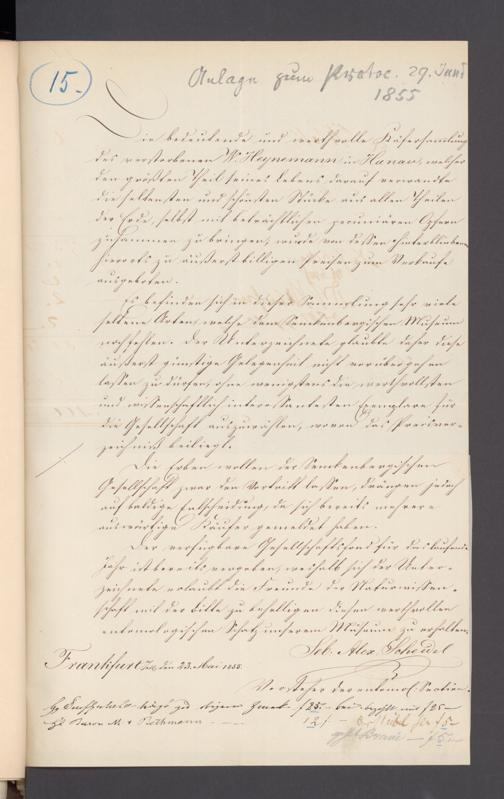 15.
Anlage zum Protoc. 29. Juni
1855
Die bedeutende und werthvolle Käfersammlung
des verstorbenen W. Heynemann in Hanau, welcher
den größten Theil seines Lebens darauf verwandte
die seltensten und schönsten Stücke aus allen Theilen
der Erde, selbst mit beträchtlichen pecuniären Opfern
zusammen zu bringen, wurde von dessen Hinterbliebenen
hierorts zu äußerst billigen Preisen zum Verkaufe
ausgeboten.
Es befinden sich in dieser Sammlung sehr viele
seltene Arten, welche dem Senkenbergischen Museum
noch fehlen. Der Unterzeichnete glaubte daher diese
äußerst günstige Gelegenheit nicht vorübergehen
lassen zu dürfen, ohne wenigstens die werthvollsten
und wissenschaftlich interessantesten Exemplare für
die Gesellschaft auszuwählen, wovon das Preisver-
zeichniß beiliegt.
Die Erben wollen der Senkenbergischen
Gesellschaft zwar den Vortheil lassen, drängen jedoch
auf baldige Entscheidung, da sich bereits mehrere
auswärtige Käufer gemeldet haben.
Der verfügbare Gesellschaftsfond für das laufende
Jahr ist bereits vergeben, weshalb sich der Unter-
zeichnete erlaubt die Freunde der Naturwissen-
schaft mit der Bitte zu behelligen diesen werthvollen
entomologischen Schatz unserem Museum zu erhalten.
Joh. Alex Scheidel
Frankfurt den 23. Mai 1855.
Vorsteher der entomol. Section.
zu diesem Zweck f 25 — bezahlt mit f 25 —
Baron M. v. Bethmann
12 f — f 5 —
f 5 —